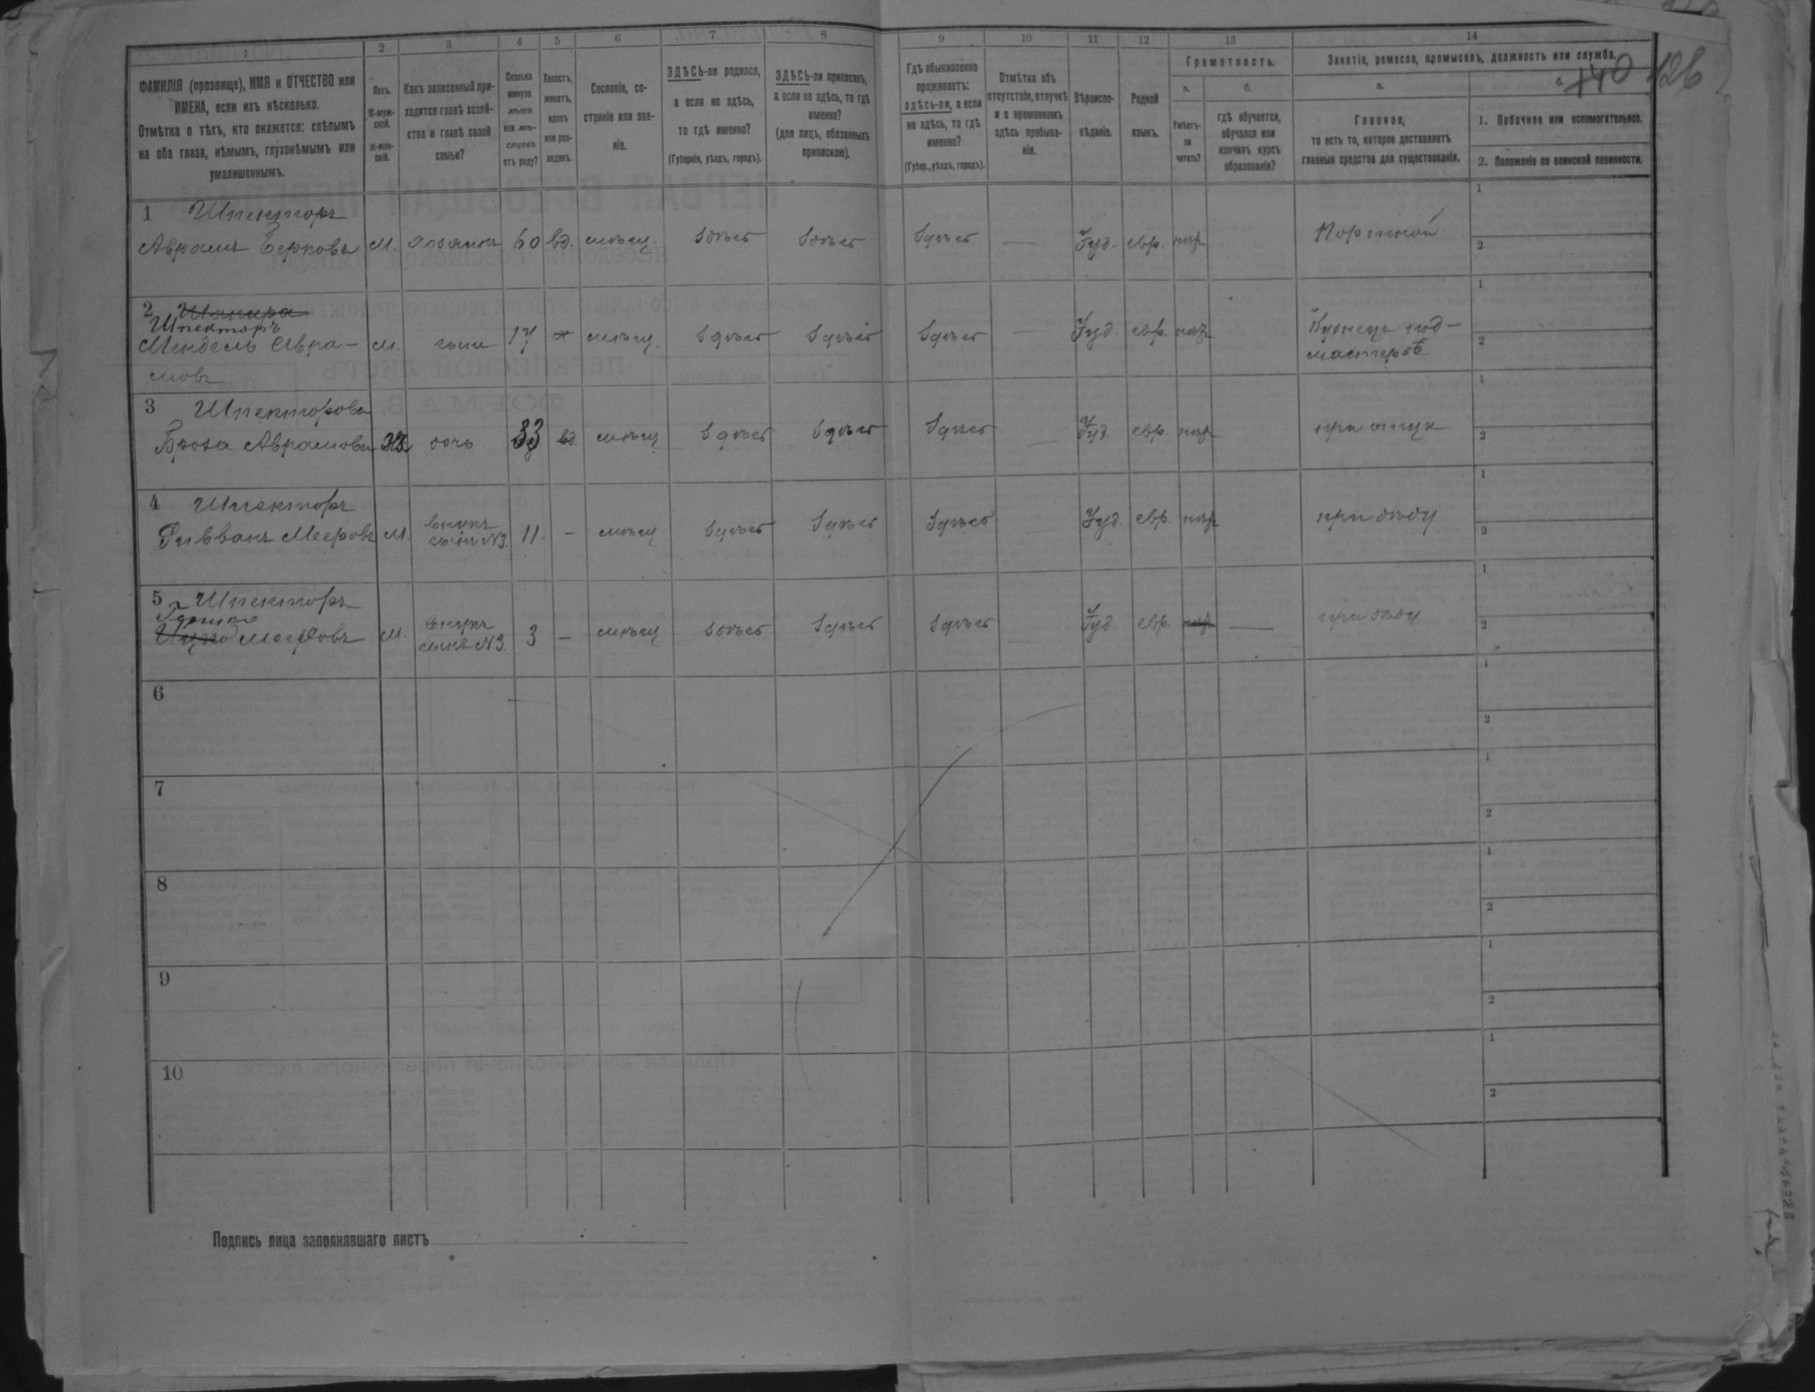 140 126
1 2 3 4 5 6 7 8 9 10 11 12 13 14
ФАМИЛІЯ (прозвище), ИМЯ и ОТЧЕСТВО или
ИМЕНА, если ихъ нѣсколько.
Отмѣтка о тѣхъ, кто окажется: слѣпымъ
на оба глаза, нѣмымъ, глухонѣмымъ или
умалишеннымъ.
Полъ.
М-муж-
ской.
Ж-жен-
скій.
Какъ записанный при-
ходится главѣ хозяй-
ства и главѣ своей
семьи?
Сколько
минуло
лѣтъ
или мѣ-
сяцевъ
отъ роду?
Холостъ,
женатъ,
вдовъ
или раз-
веденъ.
Сословіе, со-
стояніе или зва-
ніе.
ЗДѢСЬ-ли родился,
а если не здѣсь,
то гдѣ именно?
(Губернія, уѣздъ, городъ).
ЗДѢСЬ-ли приписанъ,
а если не здѣсь, то гдѣ
именно?
(для лицъ, обязанныхъ
припискою).
Гдѣ обыкновенно
проживаетъ:
здѣсь-ли, а если
не здѣсь, то гдѣ
именно?
(Губер., уѣздъ, городъ).
Отмѣтка объ
отсутствіи, отлучкѣ
и о временномъ
здѣсь пребыва-
ніи.
Вѣроиспо-
вѣданіе.
Родной
языкъ.
Грамотность.
а.
Умѣетъ-
ли
читать?
б.
гдѣ обучается,
обучался или
кончилъ курсъ
образованія?
Занятіе, ремесло, промыселъ, должность или служба.
а.
Главное,
то есть то, которое доставляетъ
главныя средства для существованія.
б.
1. Побочное или вспомогательное.
2. Положеніе по воинской повинности.
1 Шпекторъ
Аврамъ Берковъ М. хозяинъ 60 вд. мѣщ. здѣсь здѣсь здѣсь — Іуд. евр. Портной
1
2
2 Шпекторъ
Мендель Авра-
мовъ М. сынъ 17 х мѣщ. здѣсь здѣсь здѣсь — Іуд. евр. Кузнецъ под-
мастерье
1
2
3 Шпекторова
Броха Аврамова дочь 33 вд. мѣщ здѣсь здѣсь здѣсь Іуд. евр. при отцѣ
1
2
4 Шпекторъ
Мееровъ М. внукъ
сынъ №3. 11 - мѣщ здѣсь здѣсь здѣсь Іуд. евр. при дѣду
1
2
5 Шпекторъ
Мееровъ М. внукъ
сынъ №3. 3 — мѣщ здѣсь здѣсь здѣсь Іуд. евр. — при дѣду
1
2
6
1
2
7
1
2
8
1
2
9
1
2
10
1
2
Подпись лица заполнявшаго листъ